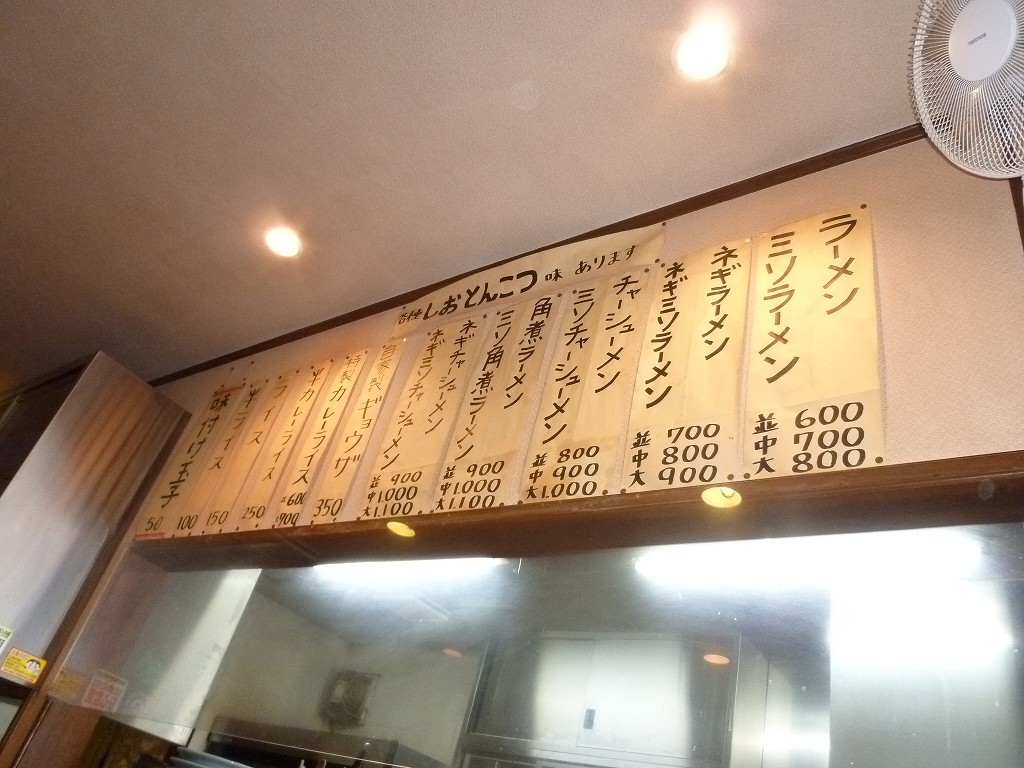 各種しおとんこつ味あります
ラーメン
ミソラーメン
並 600
中 700
大 800
ネギラーメン
ネギミソラーメン
並 700
中 800
大 900
チャーシューメン
ミソチャーシューメン
並 800
中 900
大 1.000
角煮ラーメン
ミソ角煮ラーメン
ネギチャーシューメン
並 900
中 1.000
大 1.100
ネギミソチャーシューメン
並 900
中 1.000
大 1.100
自家製ギョウザ
350
特製カレーライス
600
900
半カレーライス
250
ライス
150
半ライス
100
味付け玉子
50